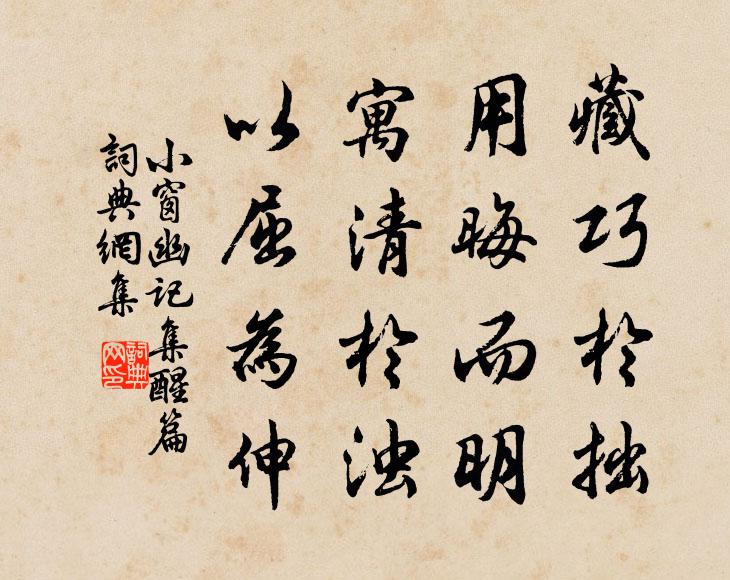 藏巧於拙
用晦而明
寓清於浊
以屈為伸
小窗幽记集醒篇
詞典網集
詞典网印